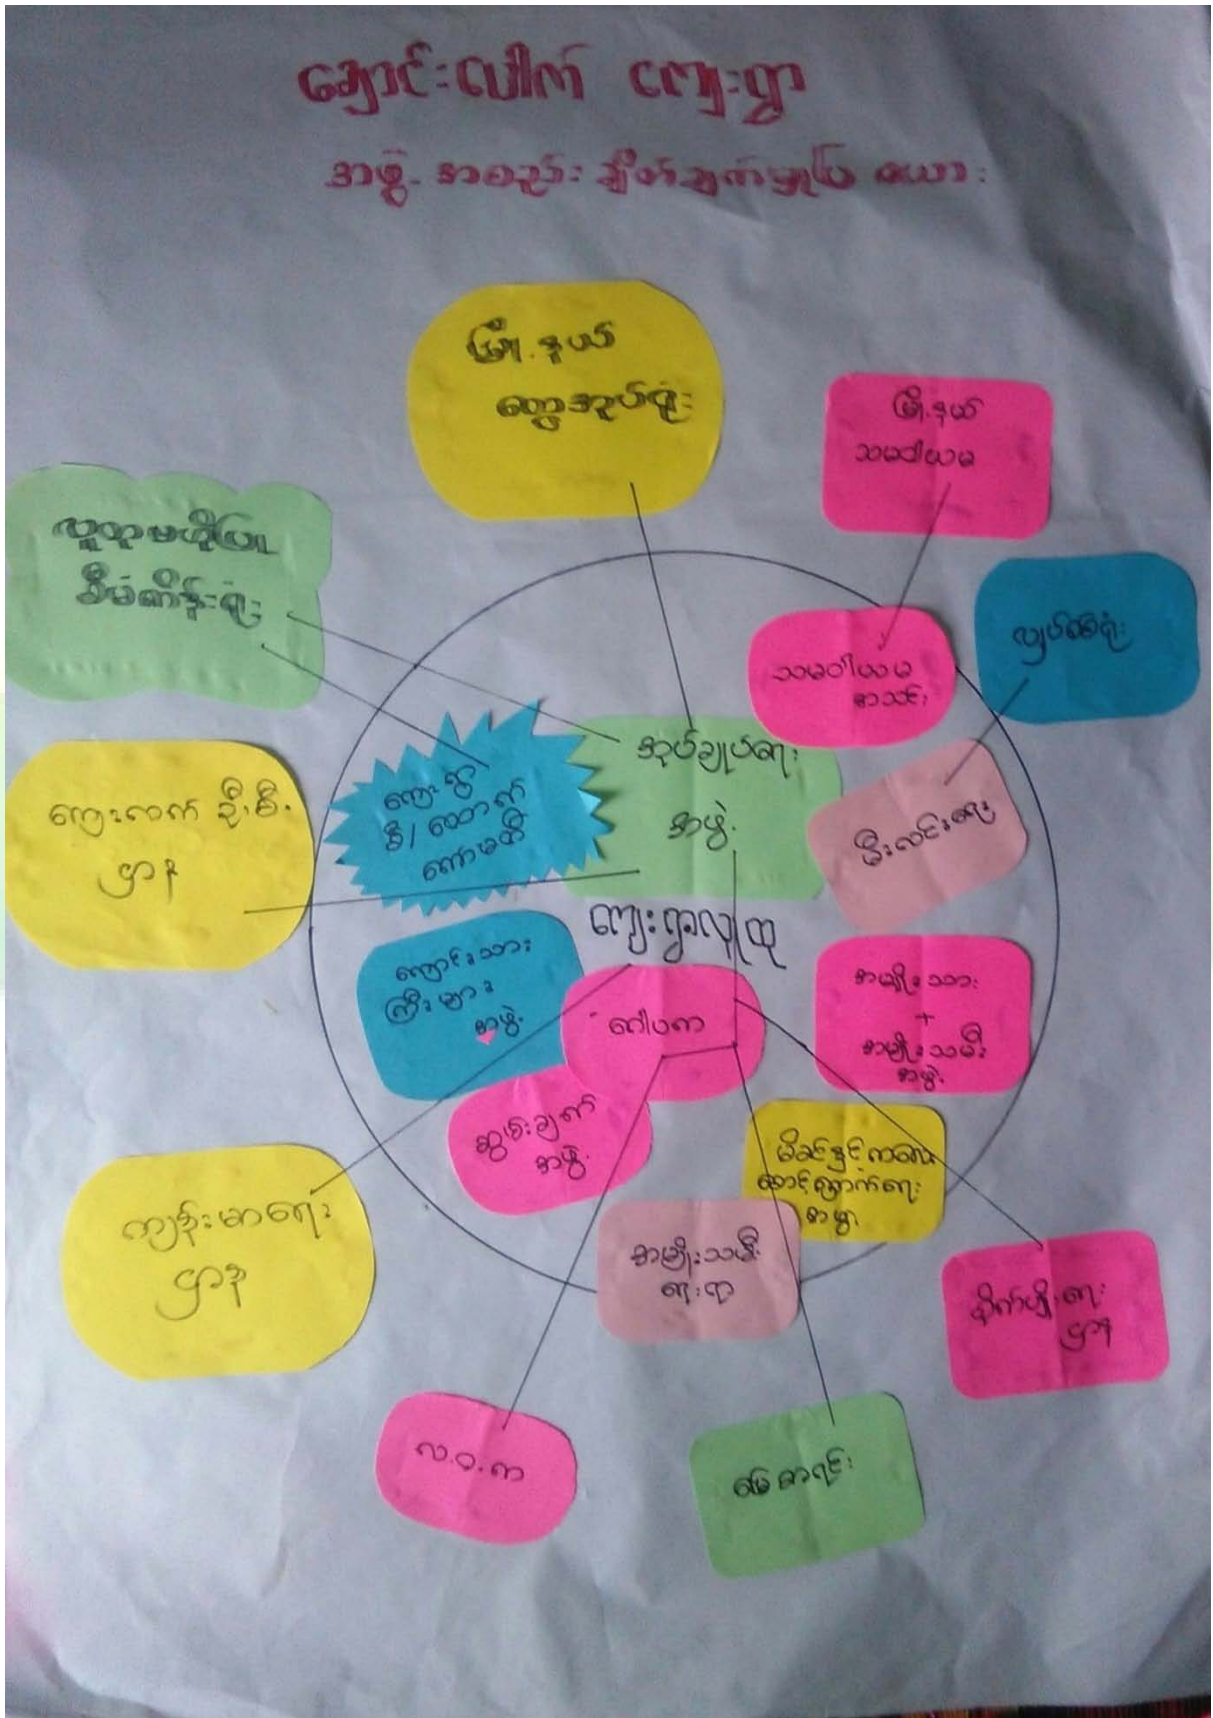 ချောင်းပေါက် ကျေးရွာ
အဖွဲ့ အစည်း ချိတ်ဆက်မှုပြ ဇယား
မြို့နယ်
ထွေအုပ်ရုံး
မြို့နယ်
သမဝါယမ
လူထုဗဟိုပြု
စီမံကိန်းရုံး
လျှပ်စစ်ရုံး
သမဝါယမ
အသင်း
အုပ်ချုပ်ရေး
အဖွဲ့
ကျေးရွာ
စီ/ထောက်
ကော်မတီ
မီးလင်းရေး
ကျေးလက် ဦး.စီး
ဌာန
ကျေးရွာလူထု
ကျောင်းသား
ကြီးများ
အဖွဲ့
ဂေါပက
အမျိုးသား
+
အမျိုးသမီး
အဖွဲ့
ဆွမ်းချက်
အဖွဲ့
မိခင်နှင့်ကလေး
စောင့်ရှောက်ရေး
အဖွဲ့
ကျန်းမာရေး
ဌာန
အမျိုးသမီး
ရေးရာ
စိုက်ပျိုးရေး
ဌာန
လ.ဝ.က
မြေစာရင်း